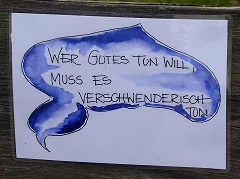 WER GUTES TUN WILL,
MUSS ES
VERSCHWENDERISCH
TUN!